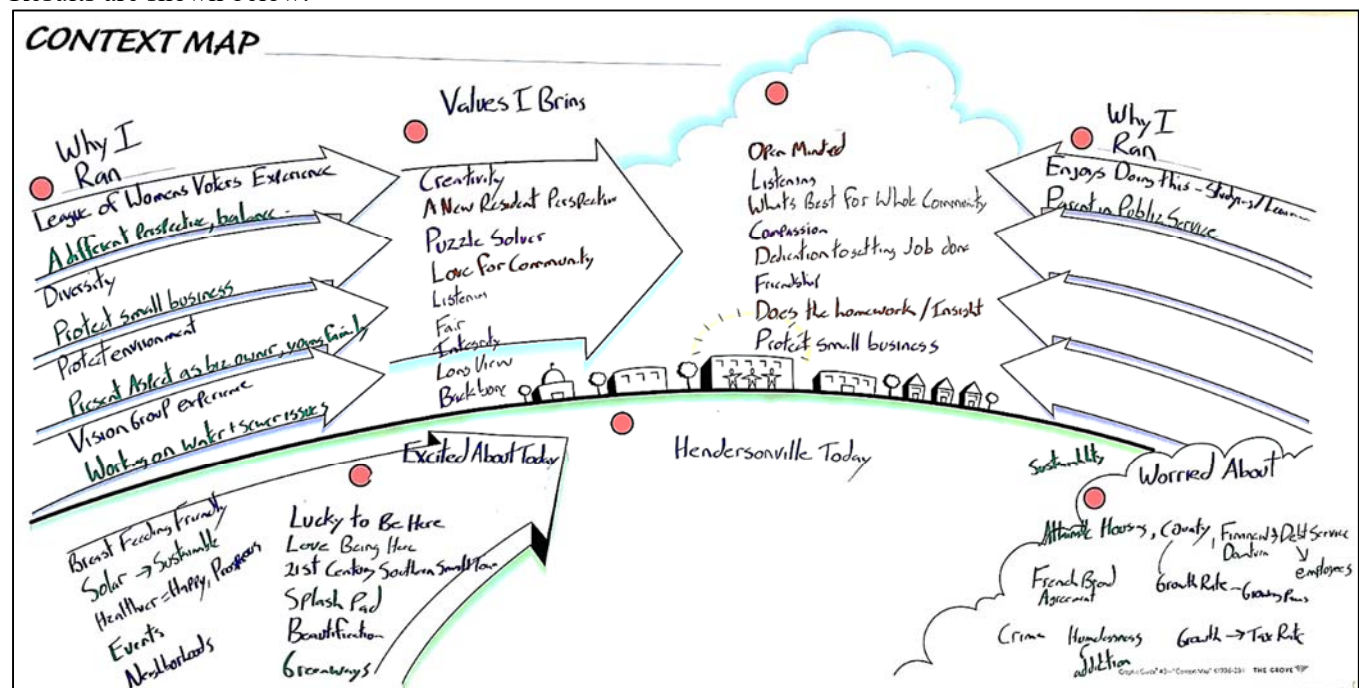 CONTEXT MAP
Why I
Ran
League of Womens Voters Experience
A different Perspective, balance
Diversity
Protect small business
Protect environment
Present Aspect as biz owner, young family
Vision Group experience
Working on water + sewer issues
Values I Bring
Creativity
A New Resident Perspective
Puzzle Solver
Love For Community
Listening
Fair
Integrity
Long View
Backbone
Open Minded
Listening
Whats Best For Whole Community
Compassion
Dedication to getting Job done
Friendship
Does the homework / Insight
Protect small business
Why I
Ran
Enjoys Doing this - Studying / Learning
Parent in Public Service
Excited About Today
Breast Feeding Friendly
Solar → Sustainable
Healthier = Happy, Prosperous
Events
Neighborhoods
Lucky to Be Here
Love Being Here
21st Century Southern Small Town
Splash Pad
Beautification
Greenways
Hendersonville Today
Sustainability
Worried About
Housing, County, Financial & Debt Service
employees
French Broad
Agreement
Growth Rate - Growing Pains
Crime
Homelessness
addiction
Growth → Tax Rate
THE GROVE